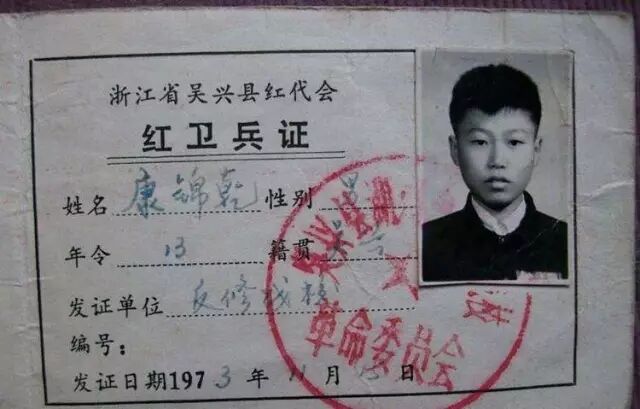 浙江省吴兴县红代会
红卫兵证
姓名 康锦乾 性别 男
年令 13 籍贯 吴兴
发证单位 反修战校
编号：
发证日期1973年11月15日
吴兴县湖
革命委员会